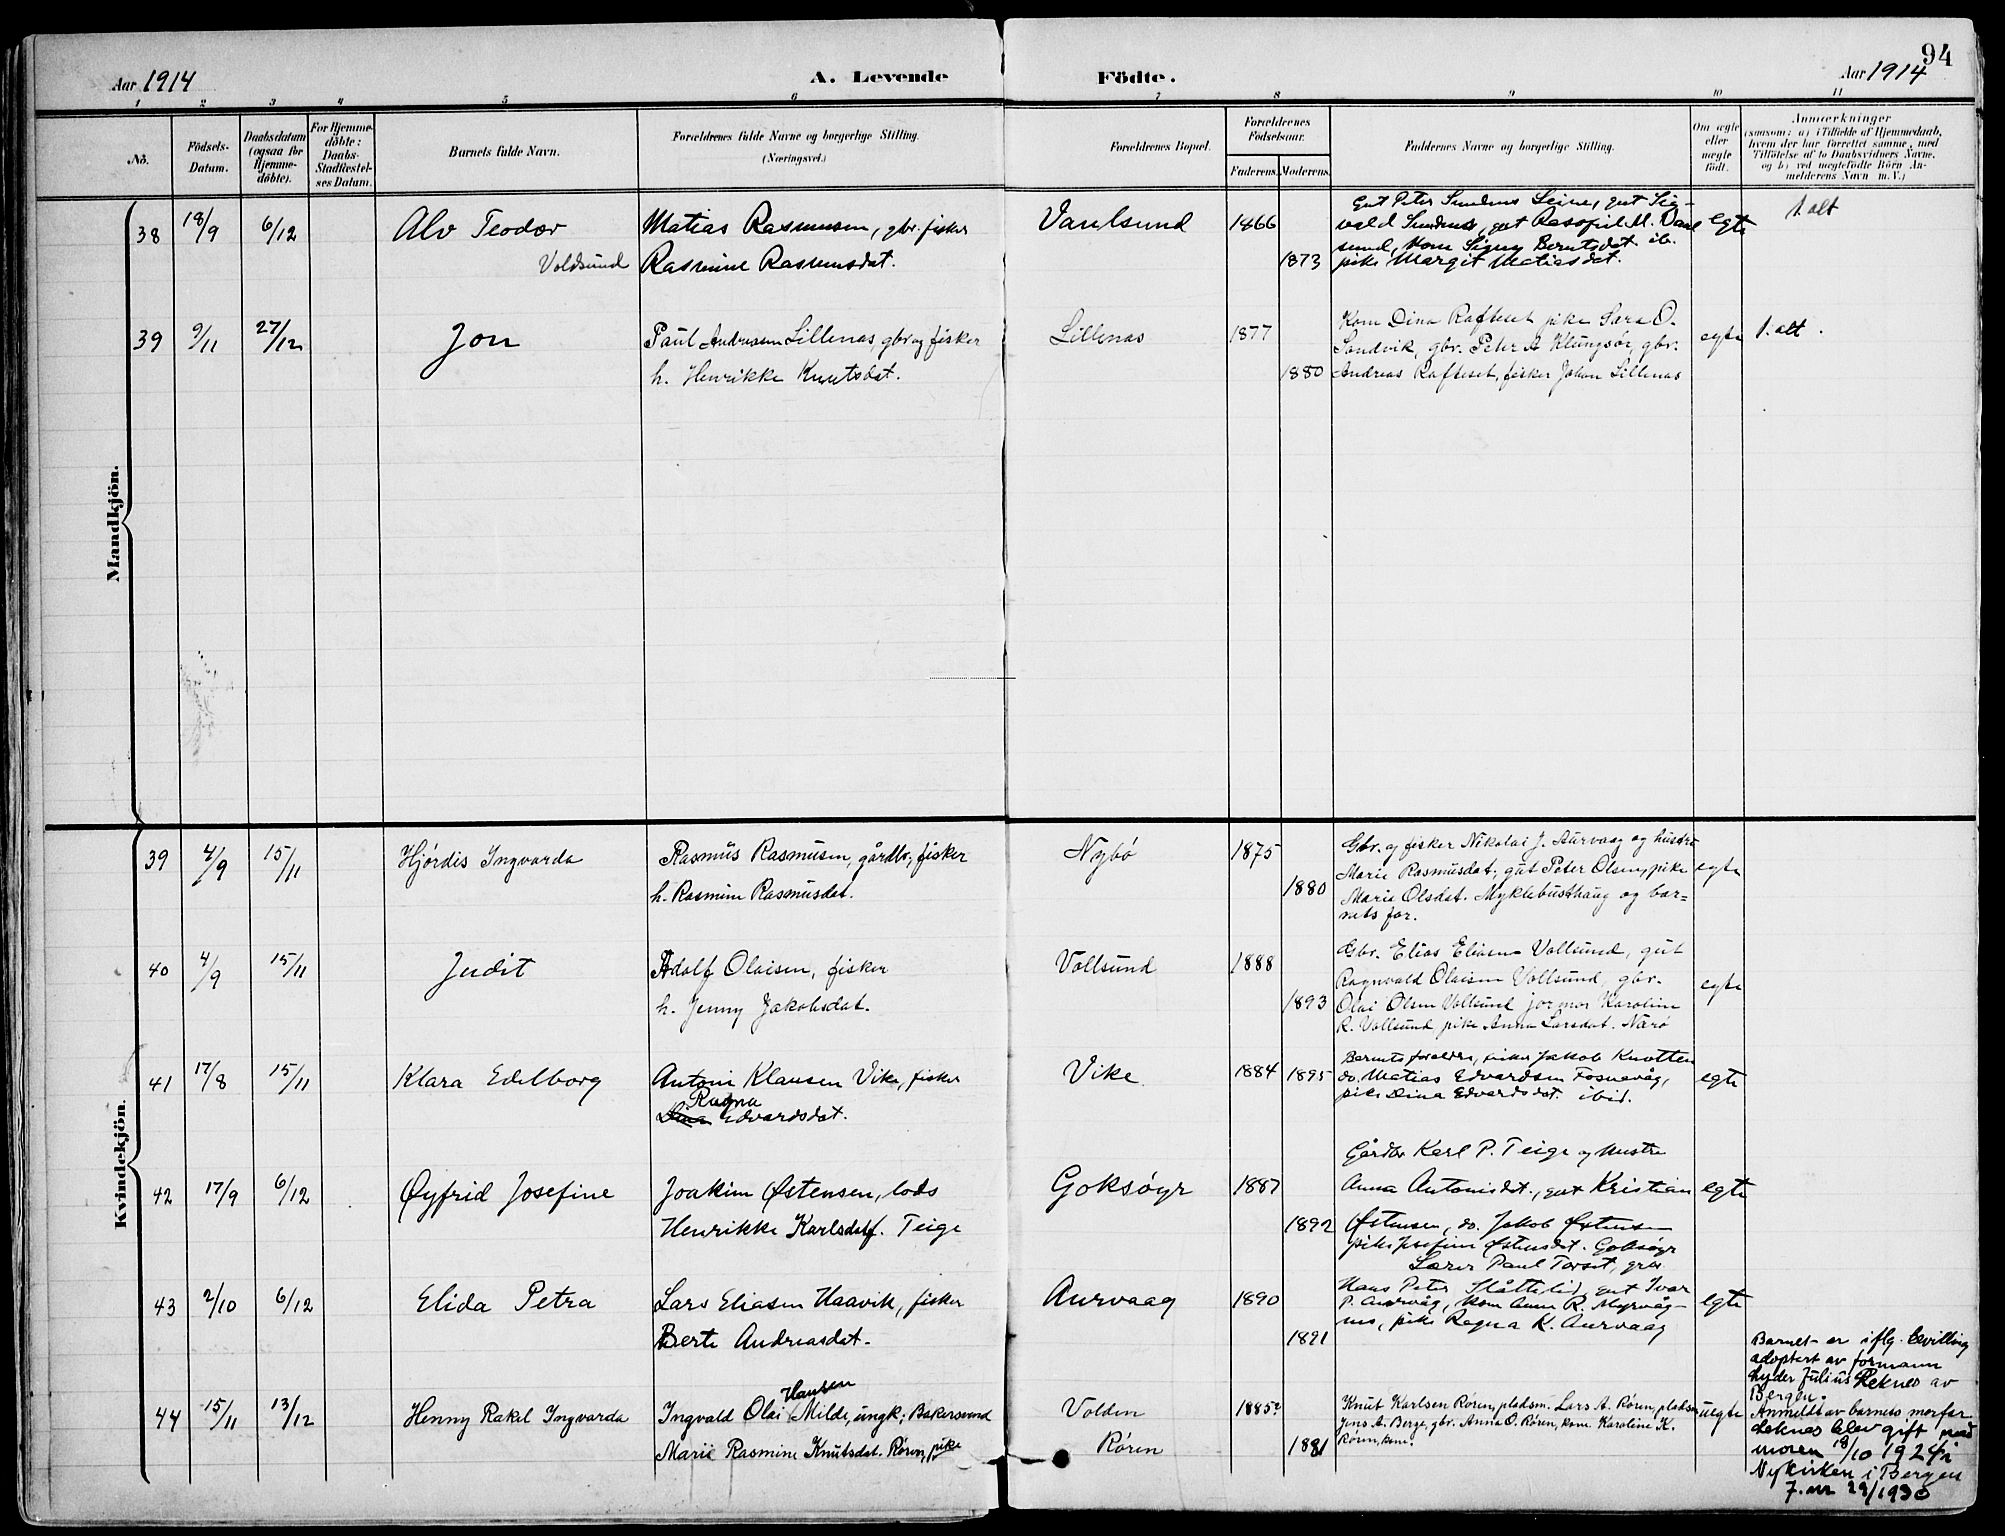 94
Aar 1914
A. Levende
Födte.
Aar 1914
1 2 3 4 5 6 7 8 9 10 11
No.
Födsels-
Datum.
Daabsdatum
(ogsaa for
Hjemme-
döbte).
For Hjemme-
döbte:
Daabs-
Stadfæstel-
ses Datum.
Barnets fulde Navn.
Forældrenes fulde Navne og borgerlige Stilling.
(Næringsvei.)
Forældrenes Bopæl.
Forældrenes
Födselsaar.
Faderens. Moderens.
Faddernes Navne og borgerlige Stilling.
Om ægte
eller
uægte
født.
Anmærkninger
(saasom: a) i Tilfælde af Hjemmedaab,
hvem der har forrettet samme, med
Tilföielse af to Daabsvidners Navne,
og b) ved uegtefödte Börn An-
melderens Navn m. V.)
Mandkjön.
38 18/9 6/12 Alv Teodor
Voldsund
Matias Rasmussen, gbr. fisker
Rasmine Rasmusdat.
1866
1873
gut Sig-
sund, Kone Signy Berntsdat. ib.
pike Margit Matiasdat.
egte
1. alt
39 9/11 27/12 Jon
Paul Andresen Lillenas, gbr og fisker
h. Henrikke Knutsdat.
Lillenas
1877
1880
Kone Dina Rafteset pike Sara O.
Sandvik, gbr. Peter A Klungsør, gbr.
Andreas Rafteset, fisker Johan Lillenas
egte
1. alt.
Kvindekjön.
39 4/9 15/11 Hjørdis Ingvarda
Rasmus Rasmusen, gårdbr, fisker
h. Rasmine Rasmusdat.
Nybø
1875
1880
Gbr. og fisker Nikolai J. Aurvaag og hustru
Marie Rasmusdat, gut Peter Olsen, pike
Marie Olsdat. Myklebusthaug og bar=
nets far.
egte
40 4/9 15/11 Judit
Adolf Olaisen, fisker
h. Jenny Jakobsdat.
Vollsund
1888
1893
Gbr. Elias Eliasen Vollsund, gut
Ragnvald Olaisen Vollsund, gbr.
Olai Olsen Vollsund, farmor Karoline
R. Vollsund pike Anna Larsdat. Nærø
egte
41 17/8 15/11 Klara Edelborg
Antoni Klausen Vike, fisker
Ragna
Dina Edvardsdat.
Vike
1884 1895
Barnets foreldre, fisker Jakob Knotten
do. Matias Edvardsen Fosnavåg,
pike Dina Edvardsdat. ibid.
egte
42 17/9 6/12 Øyfrid Josefine
Joakim Østensen, lods
Henrikke Karlsdat. Teige
Goksøyr
1887
1892
Gårdbr Karl P. Teige og Hustru
Anna Antonisdt., gut Kristian
Østensen, do. Jakob Østensen
pike Josefine Østensdt. Goksøyr
egte
43 2/10 6/12 Elida Petra
Lars Eliasen Haavik, fisker
Berte Andreasdat.
Aurvaag
1890
1891
Lærer Paul Torset, gbr.
Hans Peter Slåttelid, gut Ivar
P. Aurvåg, kone Anne R. Myrvåg-
nes, pike Ragna K. Aurvaag
egte
44 15/11 13/12 Henny Rakel Ingvarda
Hansen
Ingvald Olai Milde, ungk; Bakersvend
Marie Rasmine Knutsdat. Røren, pike
Volden
Røren
1885?
1881
Knut Karlsen Røren, pladsm. Lars A. Røren, pladsm
Jens A. Berge, gbr. Anna O. Røren, kone. Karoline K.
Røren, kone.
uegte
Barnet er iflg. bevilling
adoptert av formann
Lyder Julius Leknes av
Bergen.
Anmeldt av barnets morfar
Leknes blev gift med
moren 18/10 1924 i
Nykirken i Bergen
J. nr 29/1930